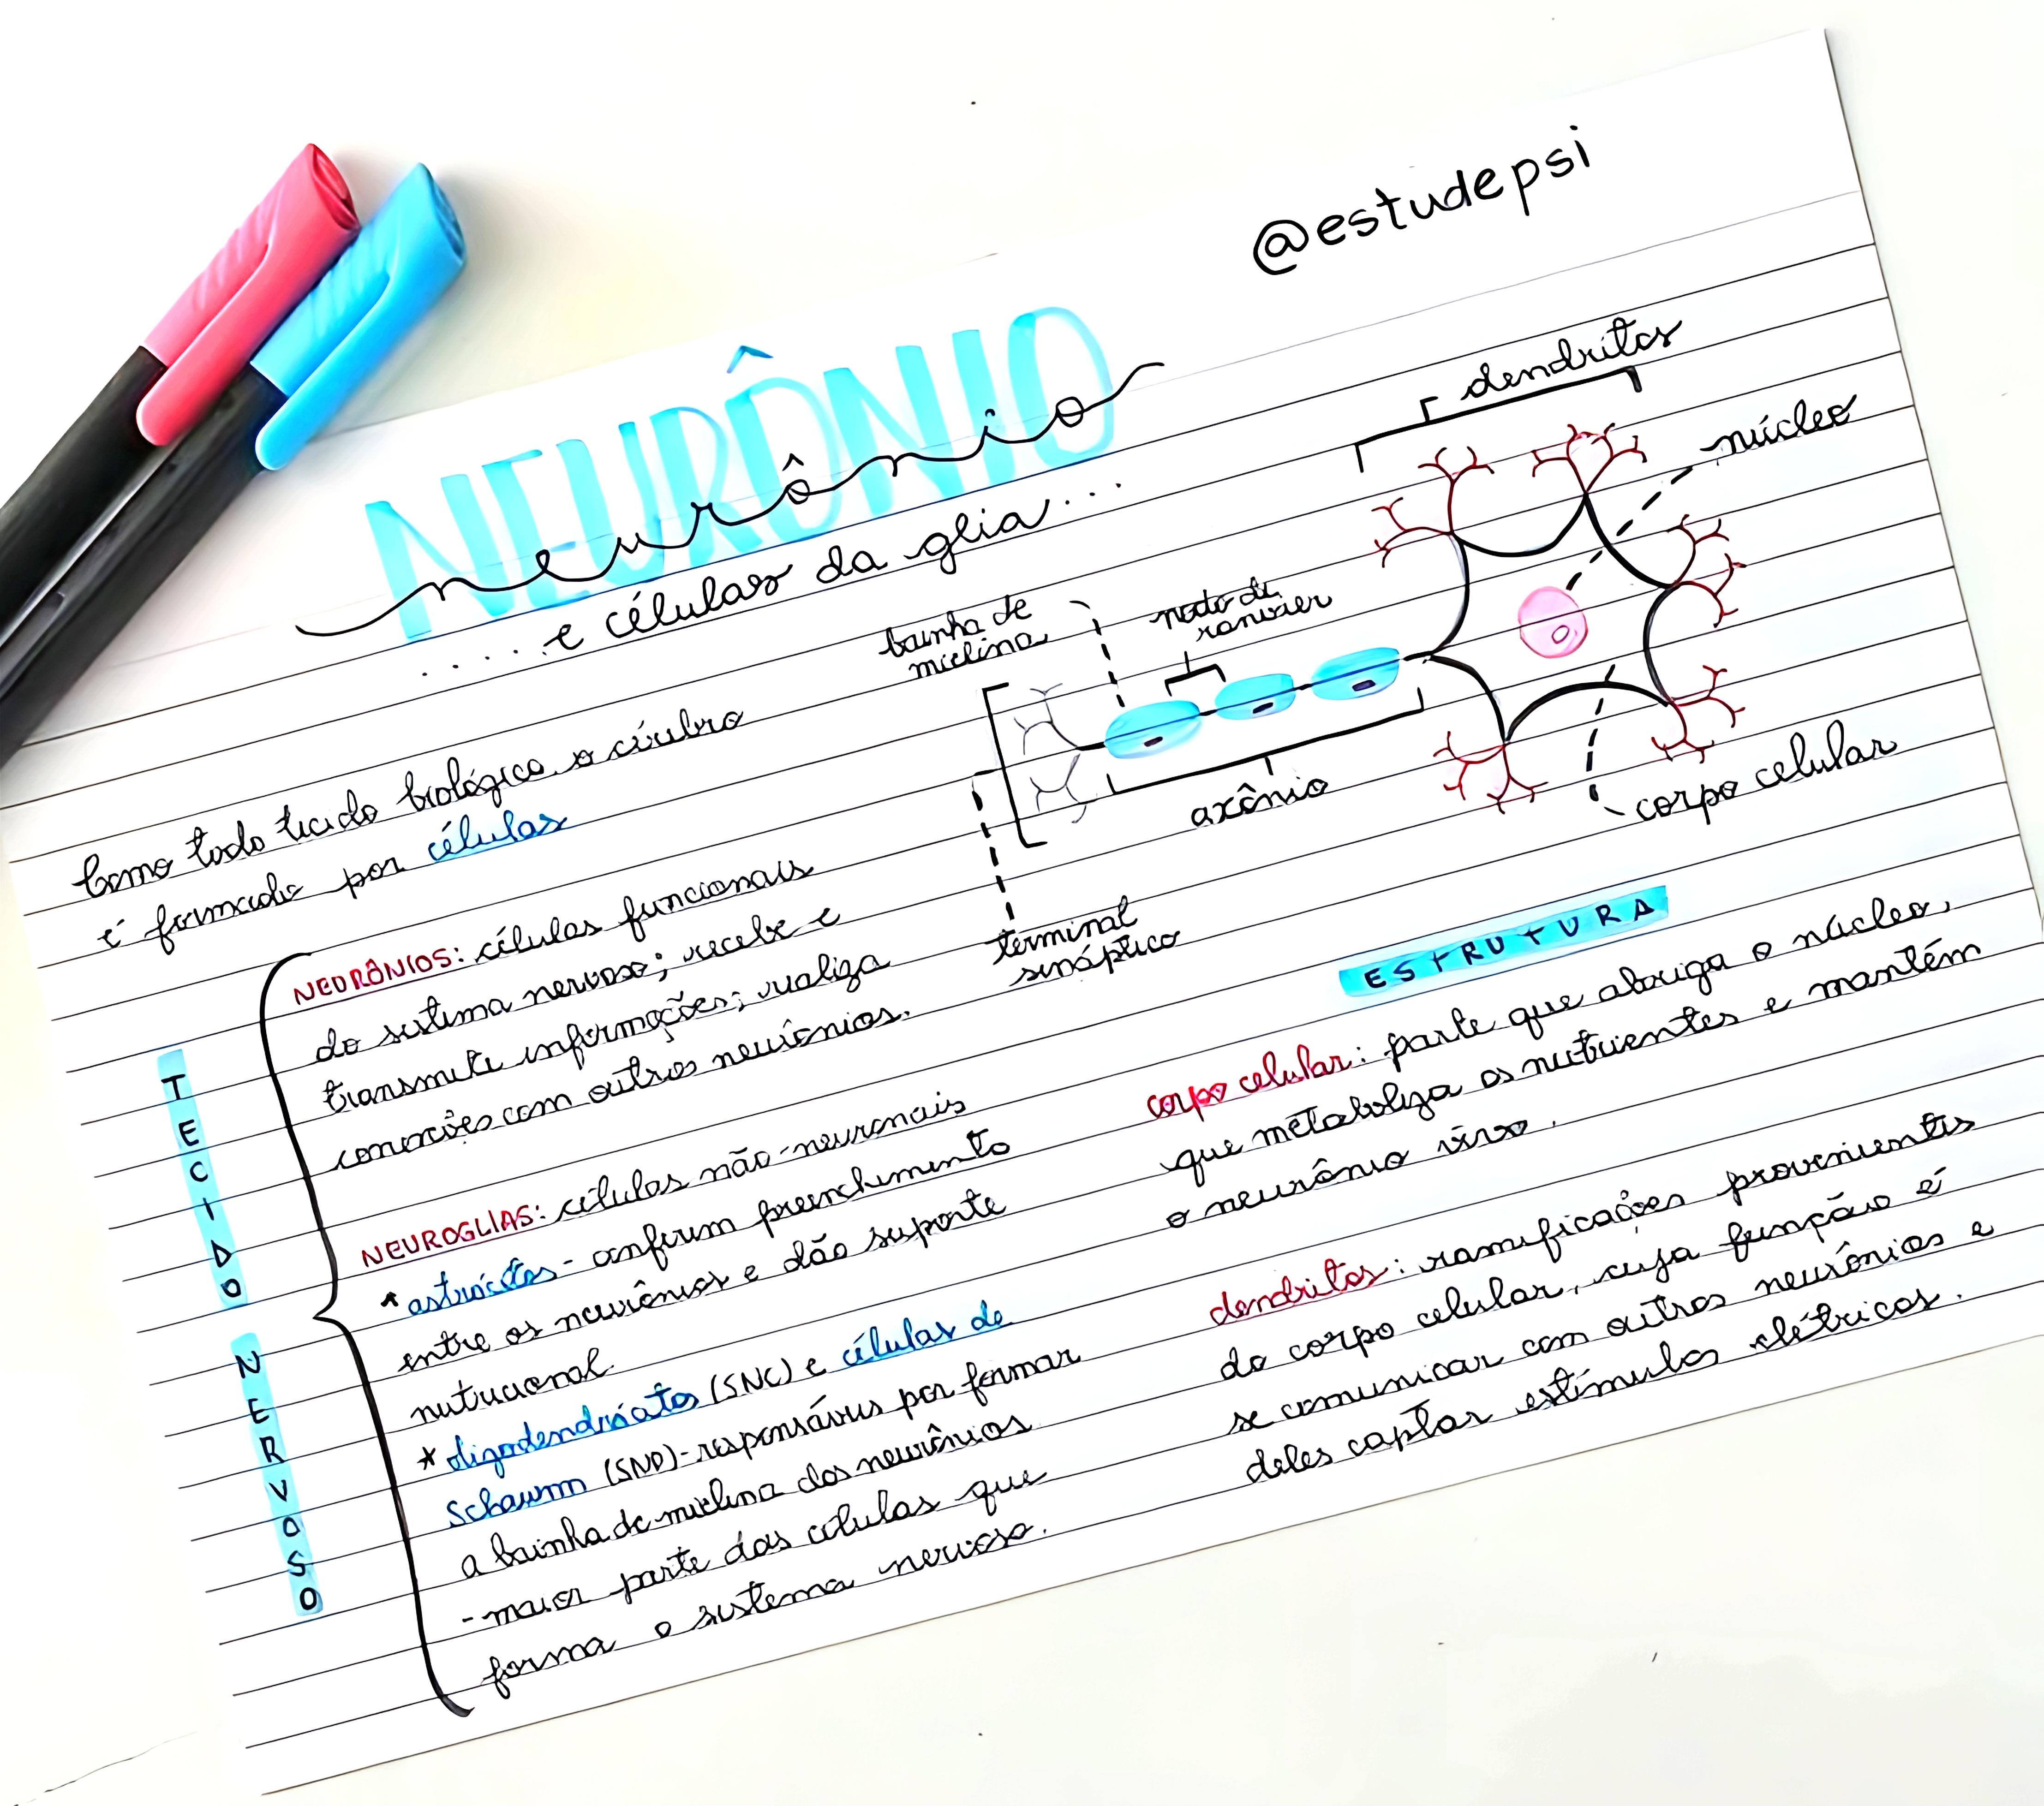 @estudepsi
NEURÔNIO
neurônio
.....e células da glia...
dendritos
núcleo
bainha de
mielina
nodo de
ranvier
axônio
corpo celular
terminal
sináptico
Como todo tecido biológico, o cérebro
é formado por células
TECIDO NERVOSO
NEURÔNIOS: células funcionais
do sistema nervoso; recebe e
transmite informações; realiza
conexões com outros neurônios.
NEUROGLIAS: células não-neuronais
* astrócitos - conferem preenchimento
entre os neurônios e dão suporte
nutricional
* oligodendrócitos (SNC) e células de
Schawnn (SNP) - responsáveis por formar
a bainha de mielina dos neurônios
- maior parte das células que
forma o sistema nervoso.
ESTRUTURA
corpo celular: parte que abriga o núcleo,
que metaboliza os nutrientes e mantém
o neurônio vivo.
dendritos: ramificações provenientes
do corpo celular, cuja função é
se comunicar com outros neurônios e
deles captar estímulos elétricos.